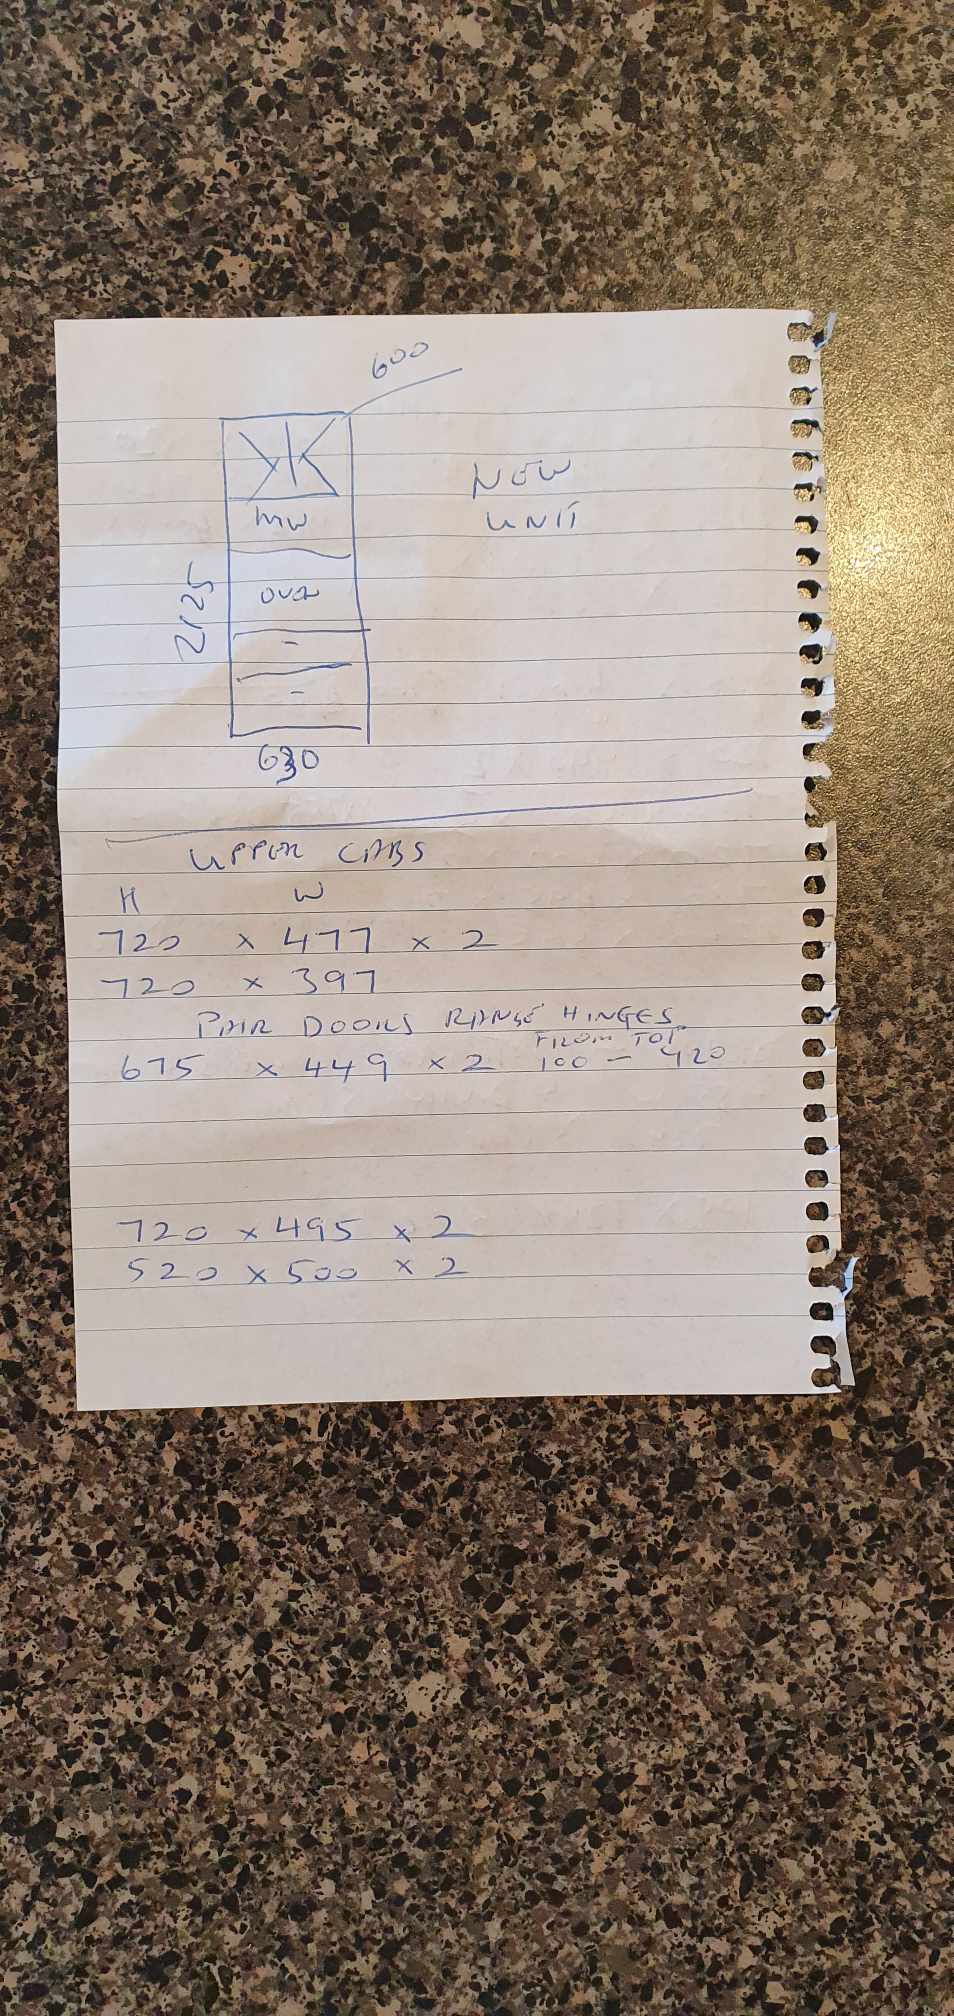 600
NEW
UNIT
MW
OVEN
2125
630
UPPER CABS
H W
720 x 477 x 2
720 x 397
PAIR DOORS RANGE HINGES
FROM TOP
675 x 449 x 2 100 - 420
720 x 495 x 2
520 x 500 x 2